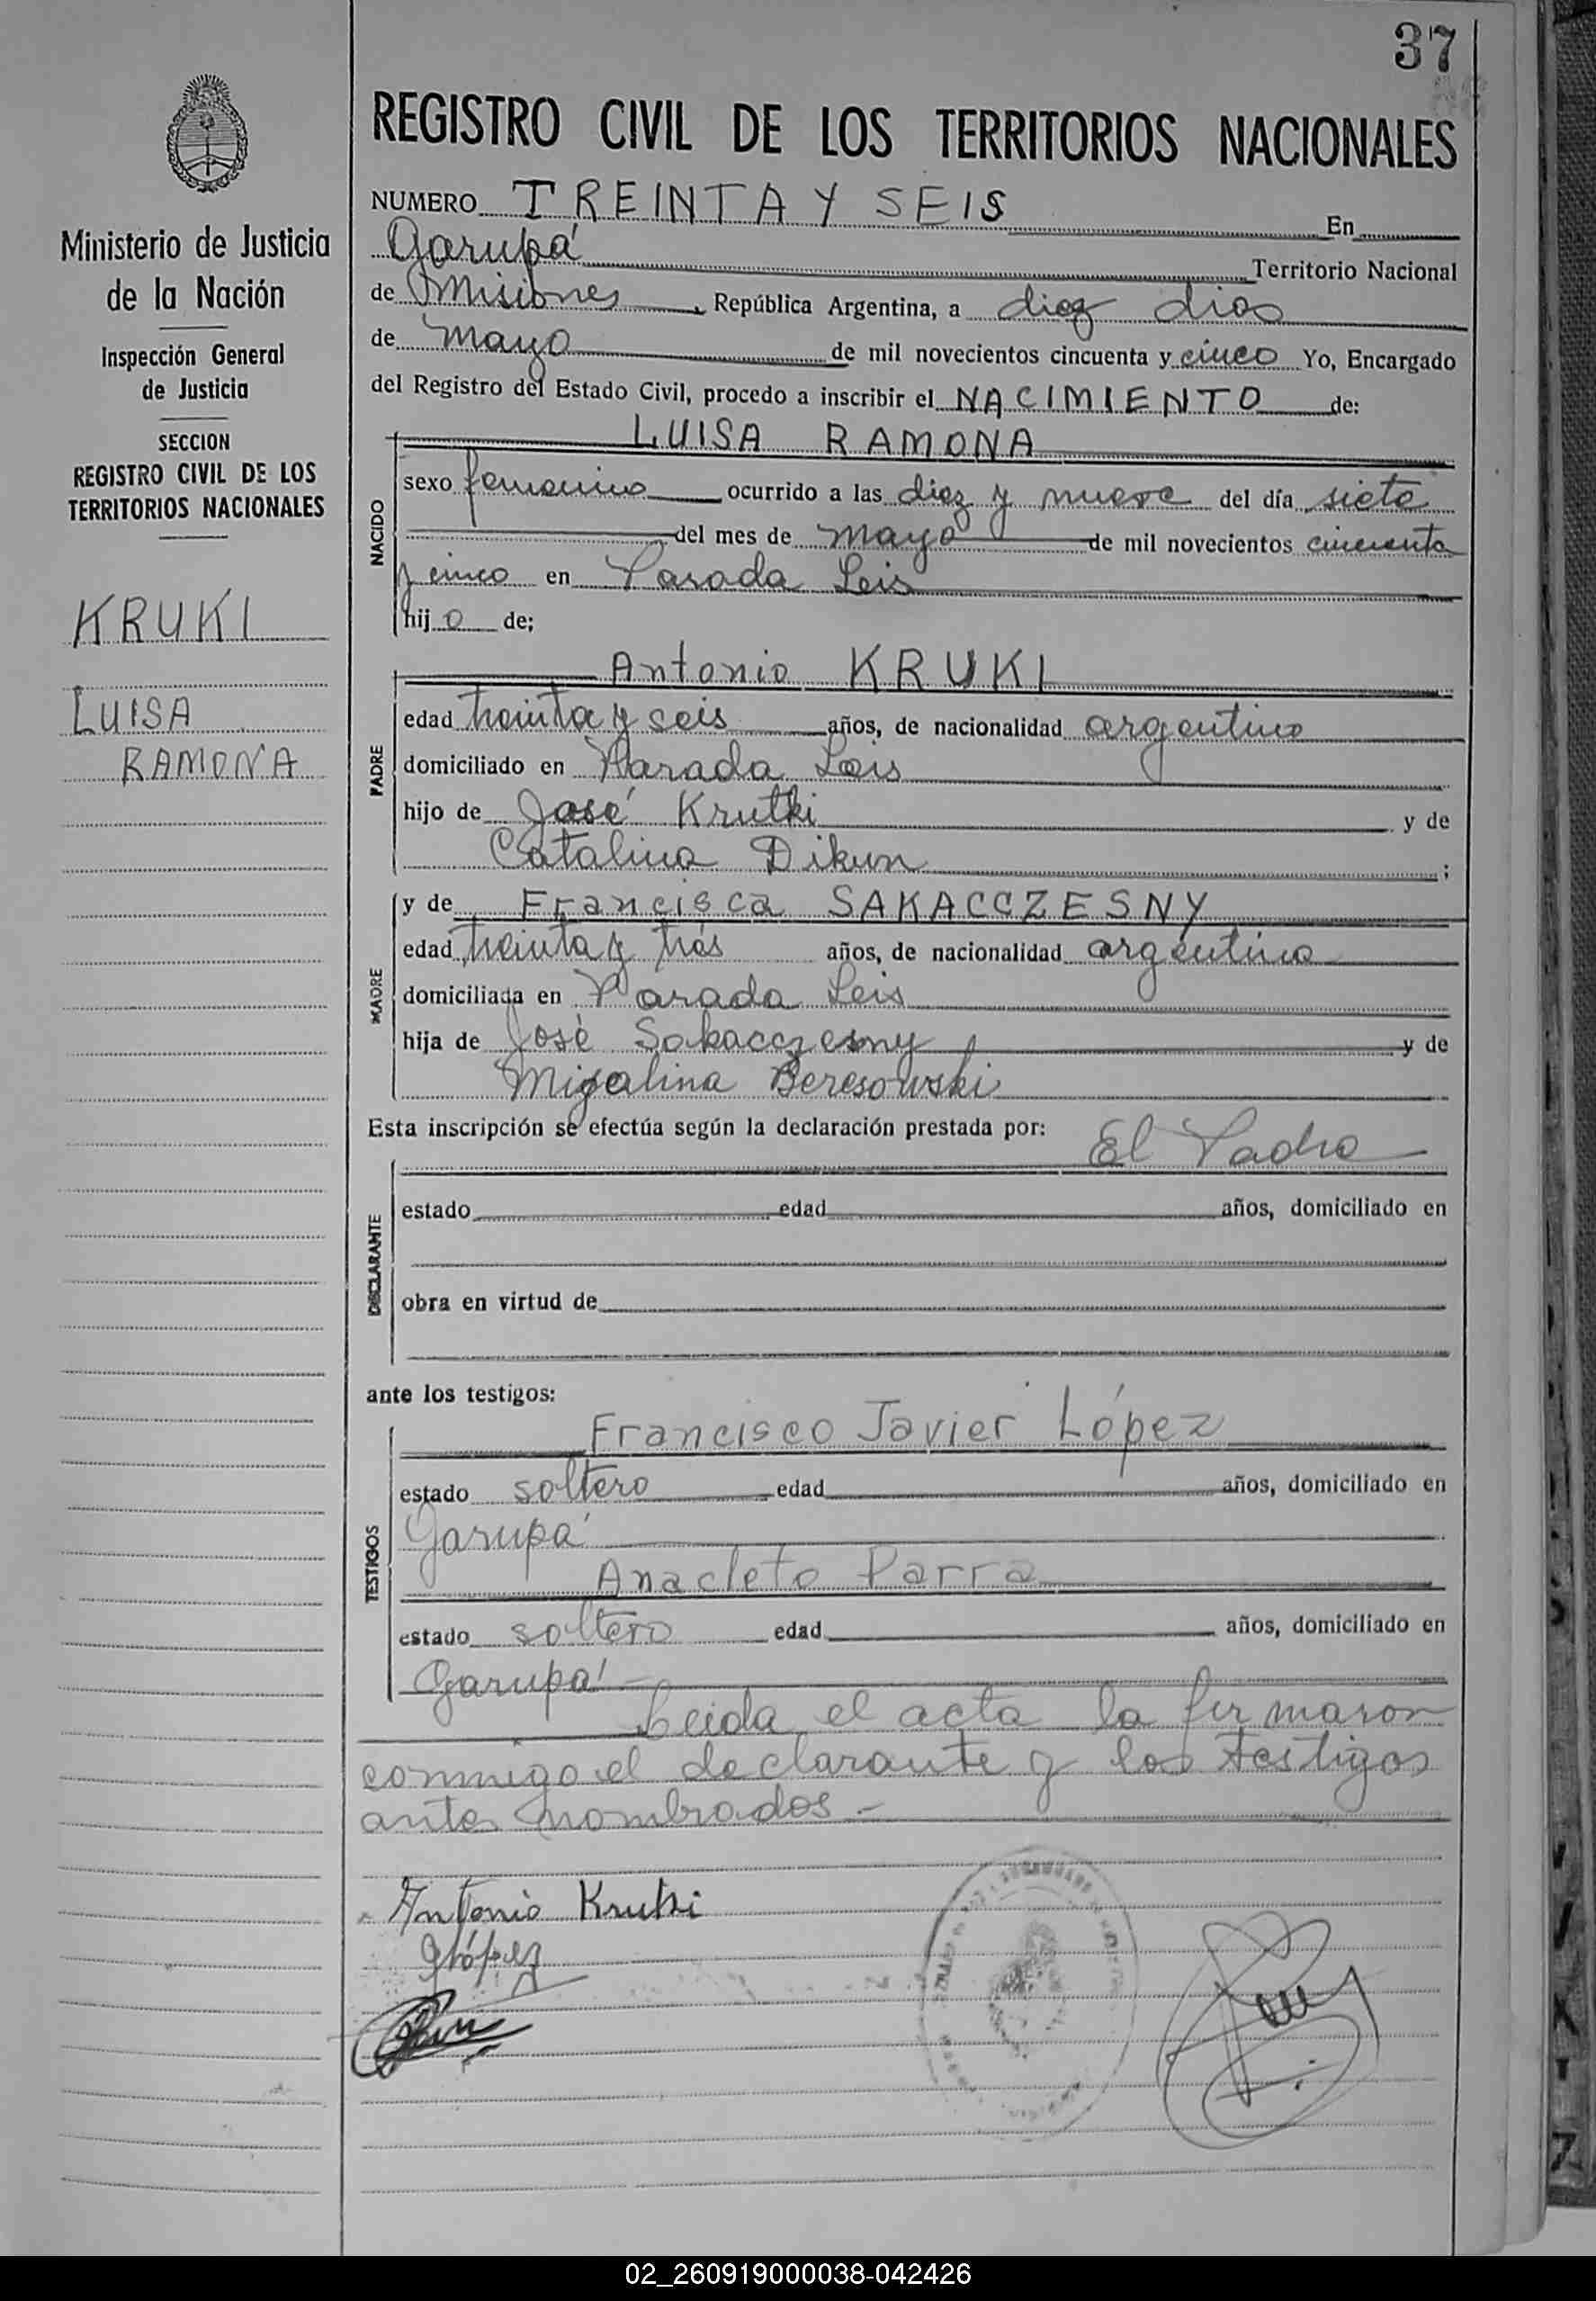 37
REGISTRO CIVIL DE LOS TERRITORIOS NACIONALES
Ministerio de Justicia
de la Nación
Inspección General
de Justicia
SECCION
REGISTRO CIVIL DE LOS
TERRITORIOS NACIONALES
KRUKI
LUISA
RAMONA
NUMERO TREINTA Y SEIS En
Garupá Territorio Nacional
de Misiones, República Argentina, a diez dias
de mayo de mil novecientos cincuenta y cinco Yo, Encargado
del Registro del Estado Civil, procedo a inscribir el NACIMIENTO de:
LUISA RAMONA
NACIDO
sexo femenino ocurrido a las diez y nueve del día siete
del mes de mayo de mil novecientos cincuenta
y cinco en Parada Leis
hijo de;
Antonio KRUKI
PADRE
edad treinta y seis años, de nacionalidad argentino
domiciliado en Parada Leis
hijo de José Krutki y de
Catalina Dikun ;
y de Francisca SAKACCZESNY
MADRE
edad treinta y tres años, de nacionalidad argentina
domiciliada en Parada Leis
hija de José Sakacczesny y de
Migalina Beresowski
Esta inscripción se efectúa según la declaración prestada por: El Padre
DECLARANTE
estado edad años, domiciliado en
obra en virtud de
ante los testigos:
Francisco Javier López
TESTIGOS
estado soltero edad años, domiciliado en
Garupá
Anacleto Parra
estado soltero edad años, domiciliado en
Garupá
Leida el acta la firmaron
conmigo el declarante y los testigos
antes nombrados.-
Antonio Krutki
López
02_260919000038-042426